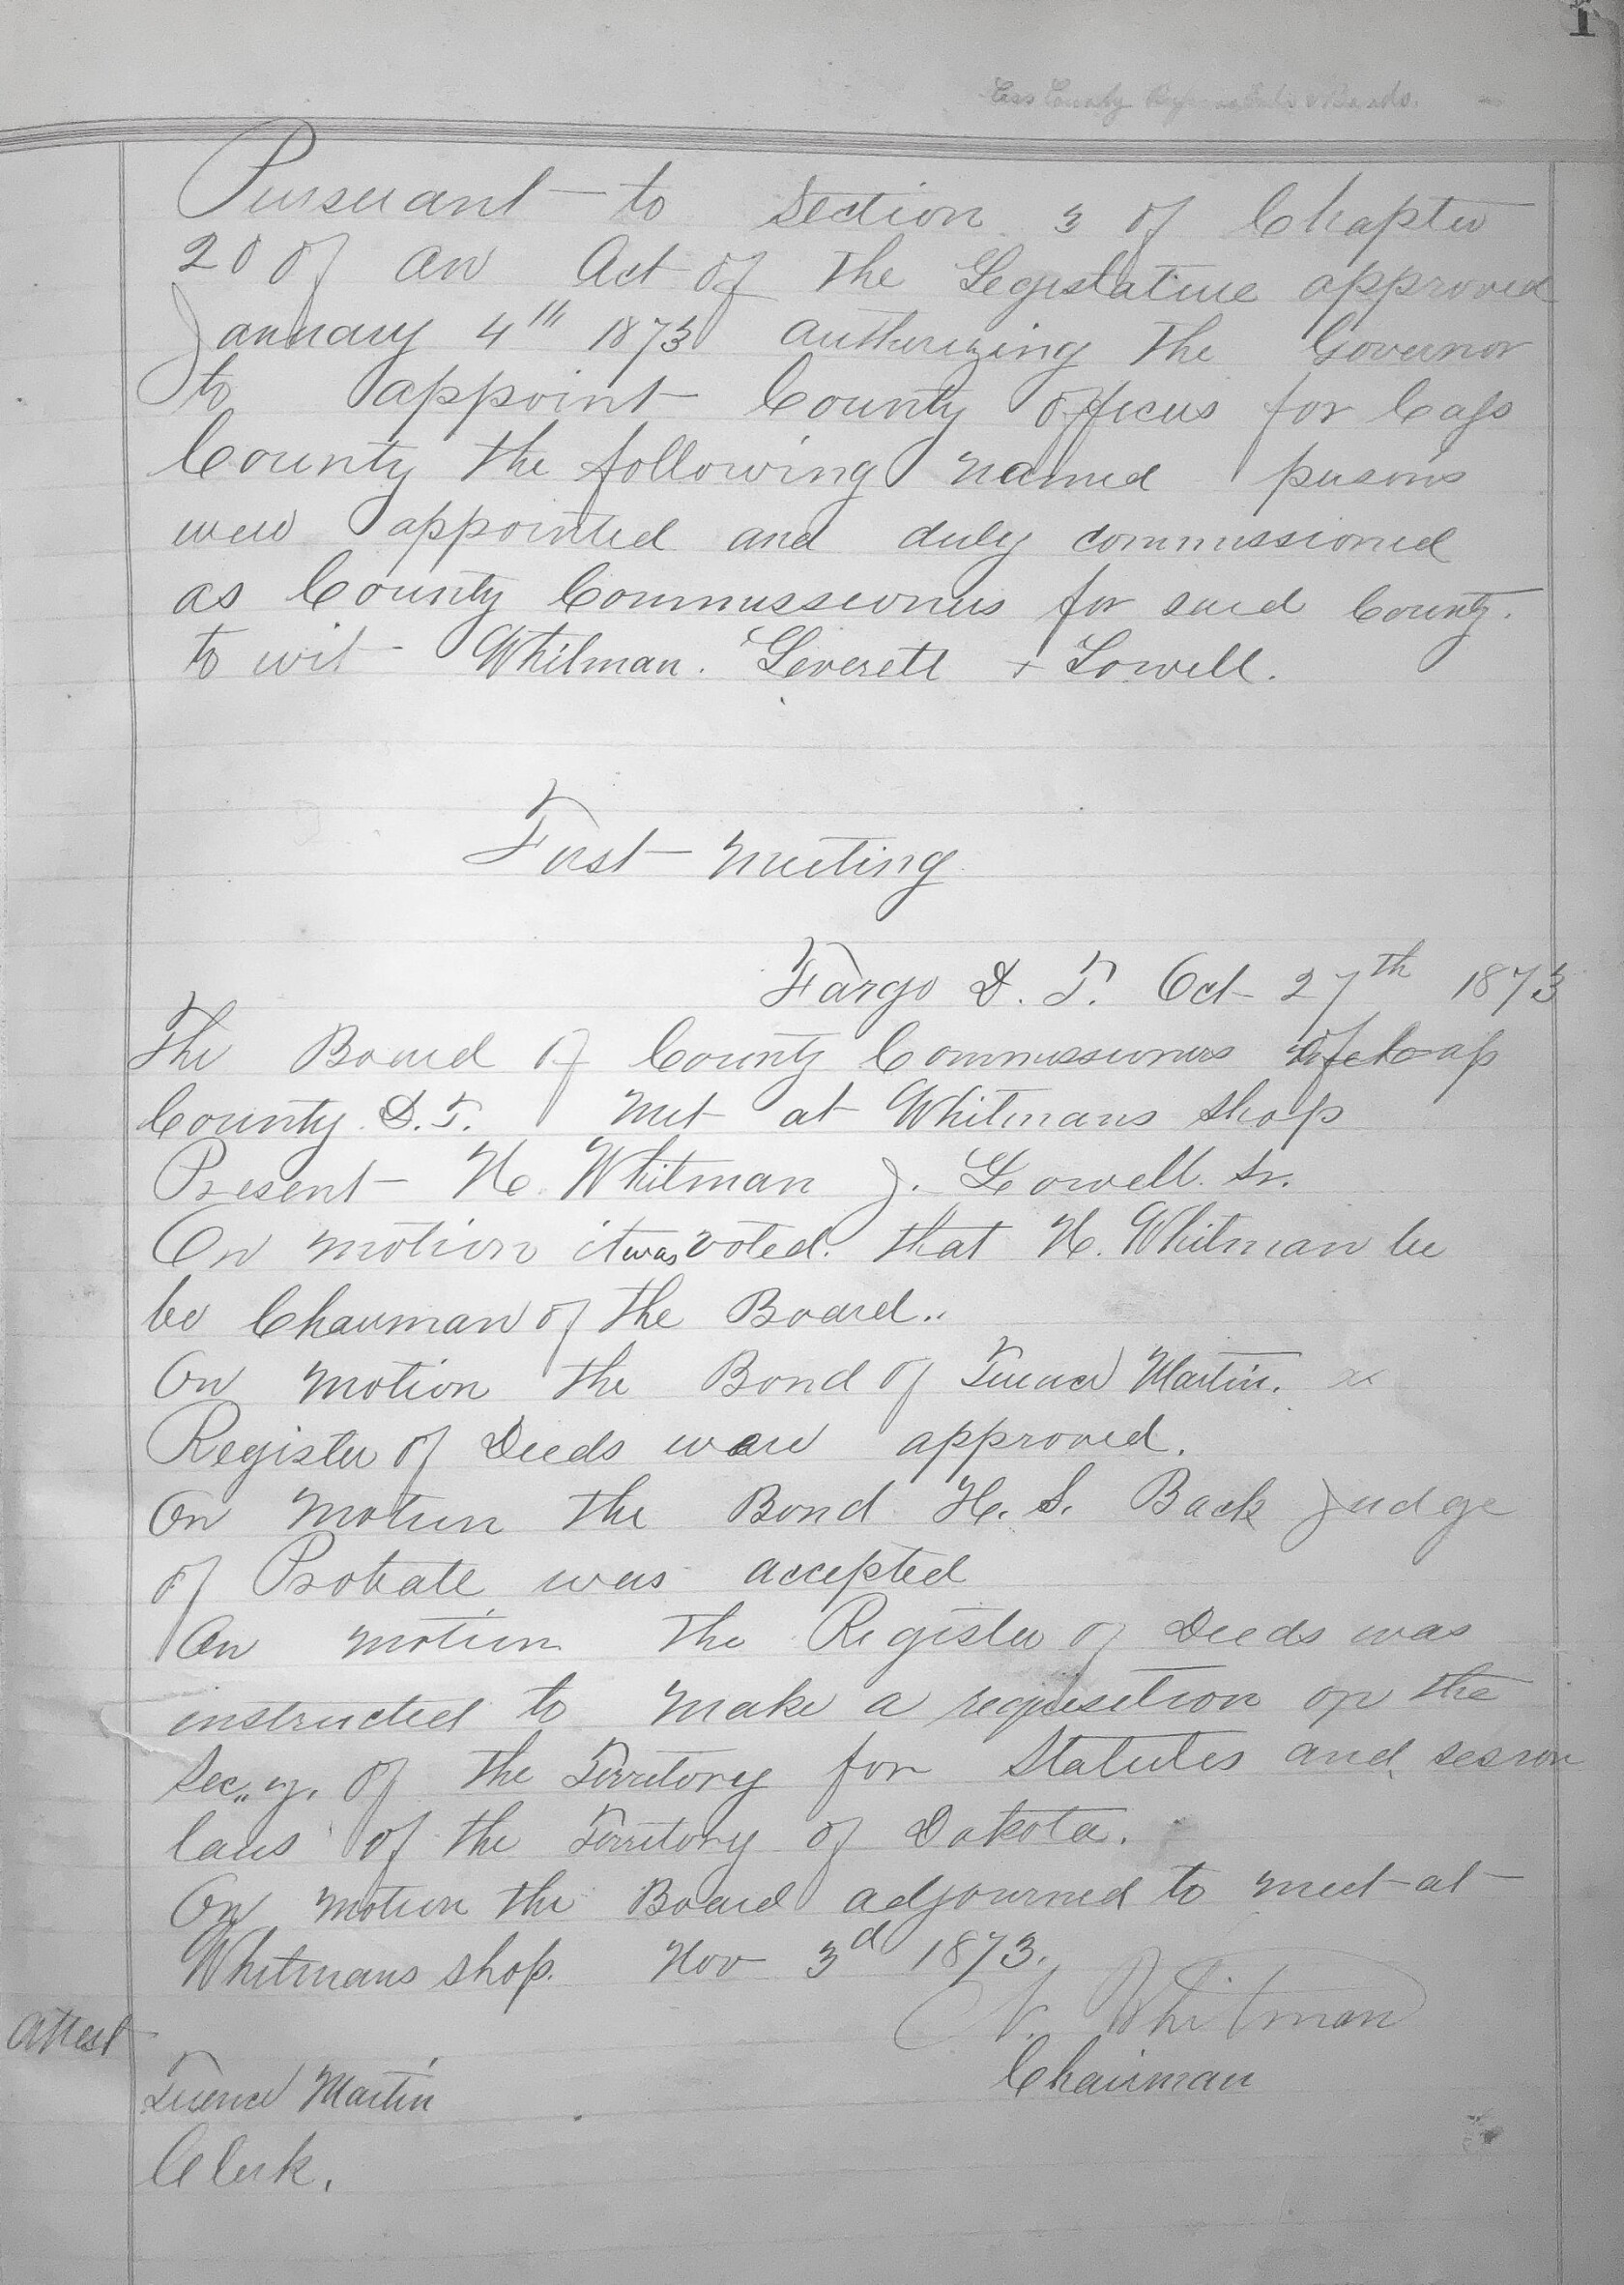 1
Cass County
Pursuant to Section 3 of Chapter
20 of an Act of the Legislature approved
January 4th 1873 authorizing the Governor
to appoint County Officers for Cass
County the following named persons
were appointed and duly commissioned
as County Commissioners for said County.
to wit - Whitman. Leverett + Lowell.
First Meeting
Fargo D. T. Oct 27th 1873
The Board of County Commissioners of Cass
County D.T. Met at Whitmans Shop
Present - N. Whitman J. Lowell Sr.
On motion it was voted. that N. Whitman be
be Chairman of the Board..
On motion the Bond of Terence Martin. x
Register of Deeds were approved.
On motion the Bond H. S. Back Judge
of Probate was accepted
On motion the Register of Deeds was
instructed to make a requisition on the
Sec,,y. of the Territory for Statutes and session
laws of the Territory of Dakota.
On motion the Board adjourned to meet at
Whitmans shop. Nov 3d 1873.
N. Whitman
Attest
Chairman
Terence Martin
Clerk.